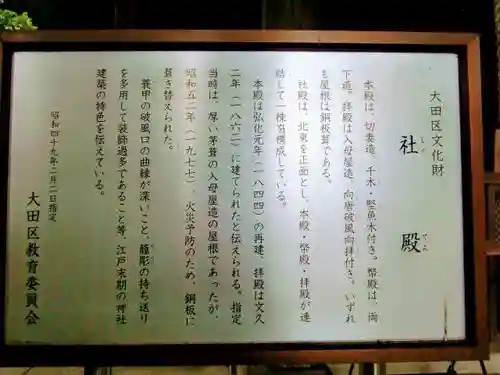 大田区文化財
社殿
しゃ でん
本殿は、切妻造、千木・堅魚木付き。幣殿は、両
下造。拝殿は入母屋造、向唐破風向拝付き。いずれ
も屋根は銅板葺である。
社殿は、北東を正面とし、本殿・幣殿・拝殿が連
結して一棟を構成している。
本殿は弘化元年(一八四四)の再建、拝殿は文久
二年(一八六二)に建てられたと伝えられる。指定
当時は、厚い茅葺の入母屋造の屋根であったが、
昭和五二年(一九七七)、火災予防のため、銅板に
葺き替えられた。
蓑甲の破風口の曲線が深いこと、籠彫の持ち送り
を多用して装飾過多であること等、江戸末期の神社
建築の特色を伝えている。
昭和四十九年二月二日指定
大田区教育委員会